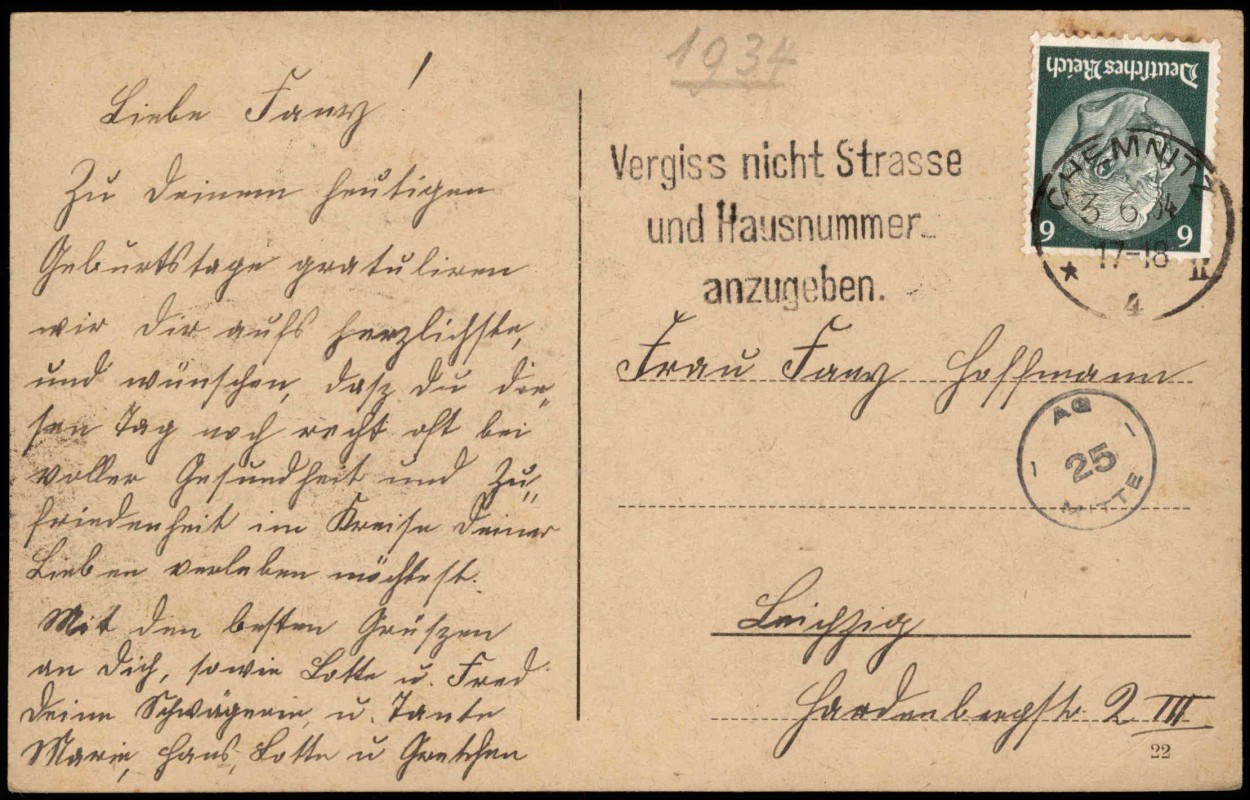 1934
Liebe Fany!
Zu Deinem heutigen
Geburtstage gratuliren
wir Dir aufs herzlichste,
und wünschen, dasz Du die-
sen Tag noch recht oft bei
voller Gesundheit und Zu-
friedenheit im Kreise Deiner
Lieben verleben möchtest.
Mit den besten Grüszen
an Dich, sowie Lotte u. Fred
Deine Schwägerin u. Tante
Marie, Hans, Lotte u Gretchen
Vergiss nicht Strasse
und Hausnummer
anzugeben.
Deutsches Reich
6 6
CHEMNITZ
6.34
17-18 II
4
Frau Fany Hoffmann
AG
25
MITTE
Leipzig
Hardenbergstr. 2 III
22